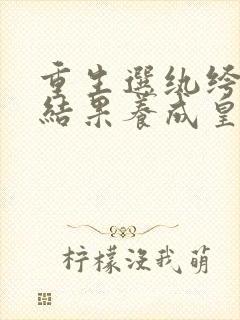 重生選紈绔
結果養成皇
柠檬没我萌